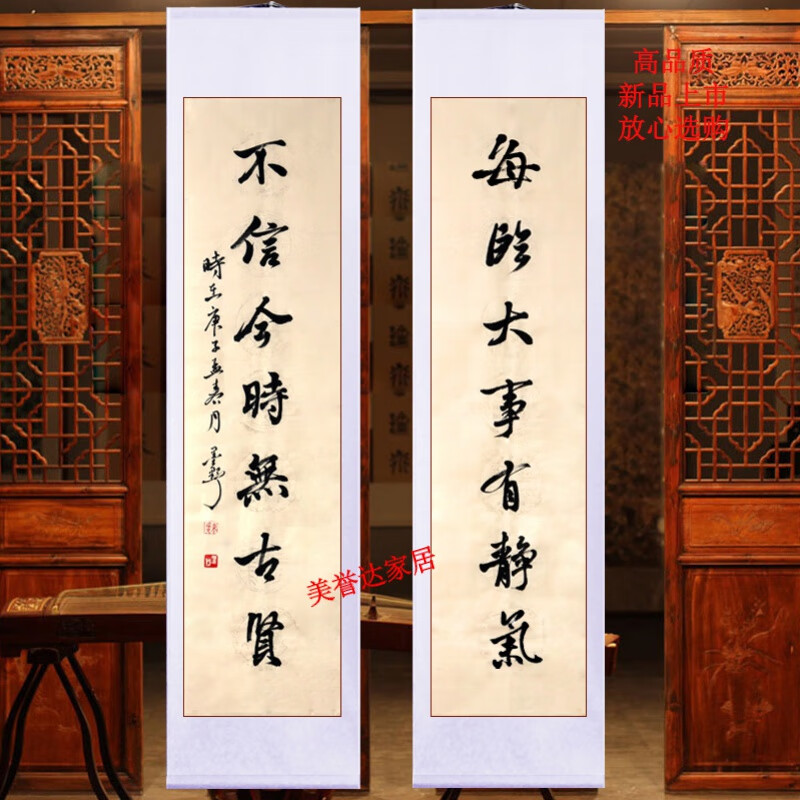 高品质
新品上市
放心选购
每臨大事有静氣
不信今時無古賢
時在庚子孟春月
美誉达家居